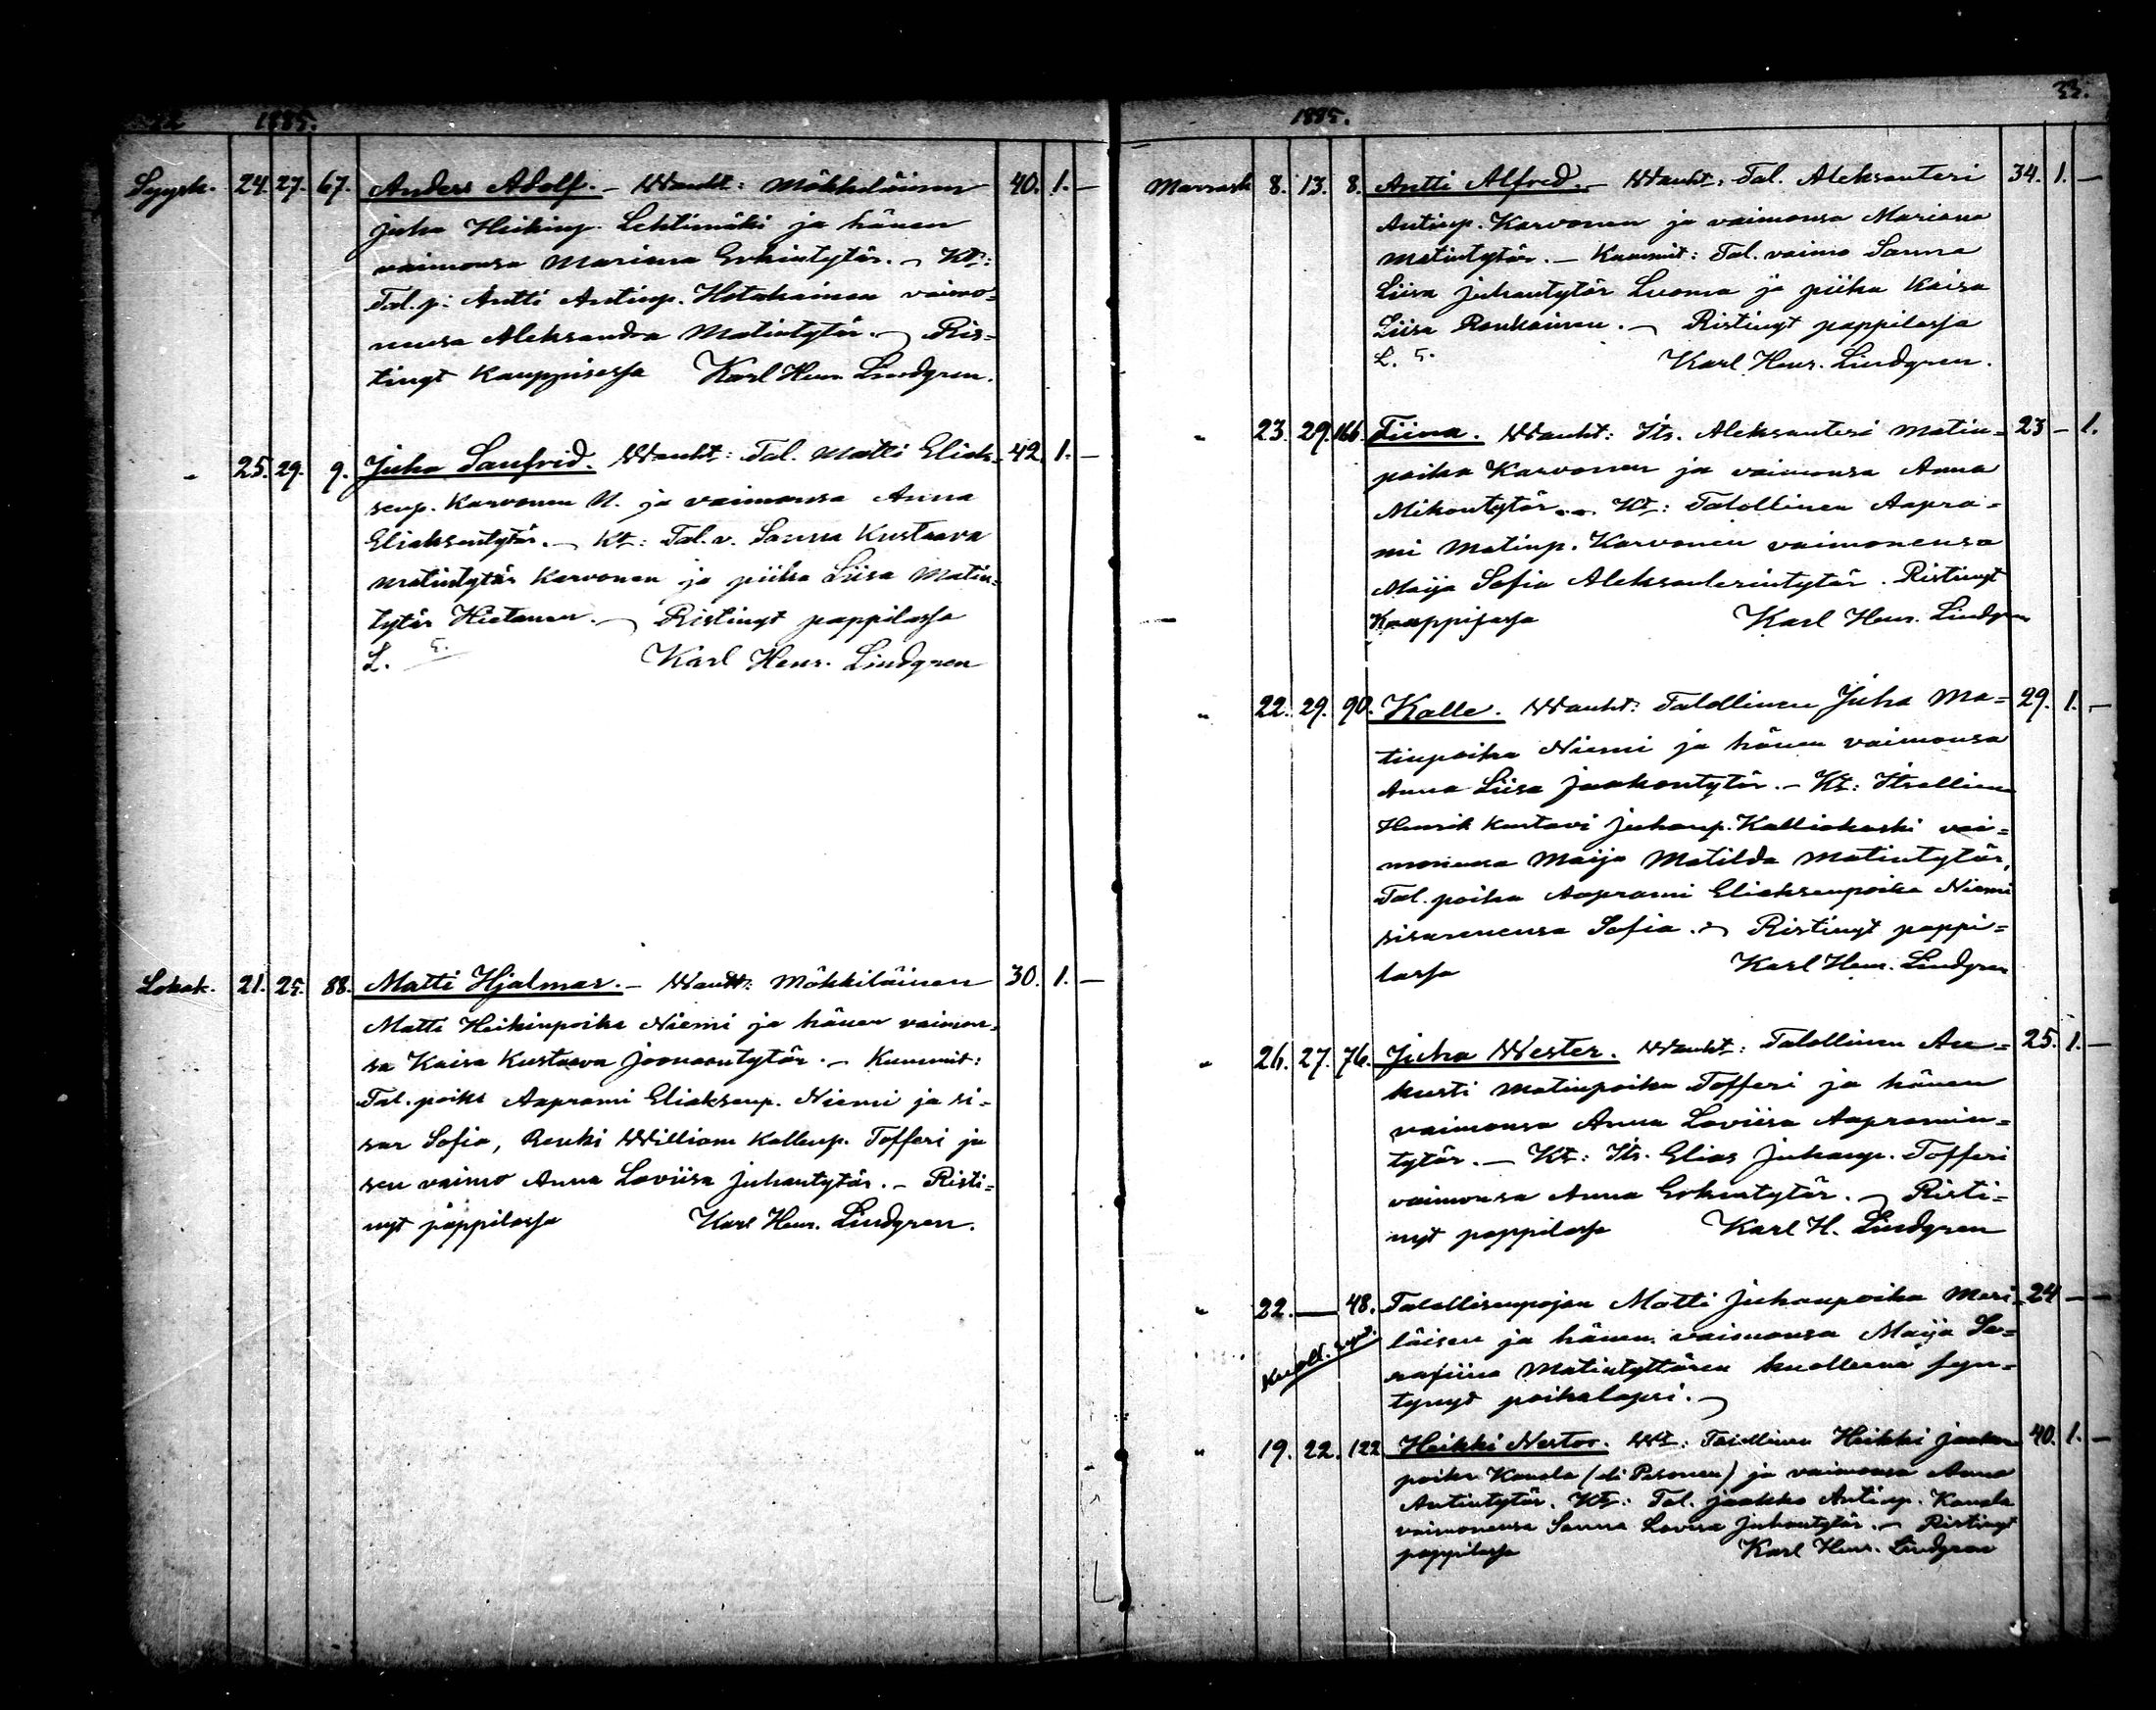 1885.
Syysk. 24. 27. 67. Anders Adolf. — Wanht: Mökkiläinen 40. 1. —
Juha Heikinp. Lehtimäki ja hänen
vaimonsa Mariana Erkintytär. — Kt:
Tal. p: Antti Antinp. Hotakainen vaimo-
neusa Aleksandra Matintytär. — Ris-
tinyt kauppisessa Karl Henr. Lindgren.
" 25. 29. 9. Juho Sanfrid. Wanht: Tal. Matti Eliak- 42. 1. —
senp. Karvonen N. ja vaimonsa Anna
Eliaksentytär. — Kt: Tal. v. Sanna Kustaava
Matintytär Karvonen ja piika Liisa Matin-
tytär Hietanen. — Ristinyt pappilassa
L. 5. Karl Henr. Lindgren
Lokak. 21. 25. 88. Matti Hjalmar. — Wanht: Mökkiläinen 30. 1. —
Matti Heikinpoika Niemi ja hänen vaimon-
sa Kaisa Kustaava Joonaantytär. — Kummit:
Tal. poika Aaprami Eliaksenp. Niemi ja si-
sar Sofia, Renki William Kallenp. Tofferi ja
sen vaimo Anna Loviisa Juhantytär. — Risti-
nyt pappilassa Karl Henr. Lindgren.
1885. 33.
Marrask 8. 13. 8. Antti Alfred. — Wanht: Tal. Aleksanteri 34. 1. —
Antinp. Karvonen ja vaimonsa Mariana
Matintytär. — Kummit: Tal. vaimo Sanna
Liisa Juhantytär Luoma ja piika Kaisa
Liisa Ronkainen. — Ristinyt pappilassa
L. 5. Karl Henr. Lindgren.
" 23. 29. 166. Tiina. Wanht: Its. Aleksanteri Matin- 23 — 1.
poika Karvonen ja vaimonsa Anna
Mikontytär. — Kt: Talollinen Aapra-
mi Matinp. Karvonen vaimonensa
Maija Sofia Aleksanterintytär. Ristinyt
Kauppisassa Karl Henr. Lindgren
" 22. 29. 90. Kalle. Wanht: Talollinen Juha Ma- 29. 1. —
tinpoika Niemi ja hänen vaimonsa
Anna Liisa Jaakontytär. — Kt: Itsellinen
Henrik Kustavi Juhanp. Kalliokoski vai-
monensa Maija Matilda Matintytär,
Tal. poika Aaprami Eliaksenpoika Niemi
sisarenensa Sofia. — Ristinyt pappi-
lassa Karl Henr. Lindgren
" 26. 27. 76. Juha Wester. Wanht: Talollinen Au- 25. 1. —
kusti Matinpoika Tofferi ja hänen
vaimonsa Anna Loviisa Aapramin-
tytär. — Kt: Its. Elias Juhanp. Tofferi
vaimonsa Anna Erkintytär. — Risti-
nyt pappilassa Karl H. Lindgren
" 22. — 48. Talollisenpojan Matti Juhanpoika Meri- 24 — —
läisen ja hänen vaimonsa Maija Se-
Kuoll. synt.
rafiina Matintyttären kuollenna syn-
tynyt poikalapsi. —
" 19. 22. 122 Heikki Nestor. Wt: Talollinen Heikki Jaakon 40. 1. —
poika Kauala (eli Pesonen) ja vaimonsa Anna
Antintytär. Kt: Tal. Jaakko Antinp. Kauala
vaimonensa Sanna Lovisa Juhontytär. — Ristinyt
pappilassa Karl Henr. Lindgren